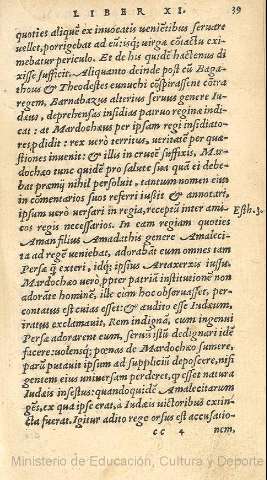 LIBER XI. 39
quoties aliquẽ ex inuocatis venientibus seruare
vellet, porrigebat ad eũ: isq; virga cõtactu exi-
mebatur periculo. Et de his quidẽ hactenus di
xisse sufficit. Aliquanto deinde post cũ Baga-
thous & Theodestes eunuchi cõspirassent cõtra
regem, Barnabazus alterius seruus genere Iu-
dæus, deprehensas insidias patruo regina indi-
cat: at Mardochæus per ipsam regi insidiato-
res p̃didit: rex verò territus, veritatẽ per quæ-
stiones inuenit: & illis in crucẽ suffixis, Mar-
dochæo tunc quidẽ pro salute sua quã ei debe-
bat præmij nihil persoluit, tantum nomen eius
in comentarios suos referri iussit & annotari,
ipsum verò versari in regia, receptũ inter ami-
cos regis necessarios. In eam regiam quoties Esth. 3.
Aman filius Amadathis genere Amaleci-
ta ad regẽ veniebat, adorabãt eum omnes tam
Persæ q̃ exteri, idq; ipsius Artaxerxis iussu.
Mardochæo verò, ppter patriã institutionẽ non
adorãte hominẽ, ille cùm hoc obseruasset, per-
contatus est cuias esset: & audito esse Iudæum,
iratus exclamauit, Rem indignã, cum ingenui
Persæ adorarent eum, seruũ istũ dedignari idẽ
facere: volensq; pœnas de Mardochæo sumere,
parũ putauit ipsum ad suppliciũ deposcere, nisi
gentem eius vniuersam perderet, q̃ esset natura
Iudæis infestus: quandoquidẽ Amalecitarum
gẽs, ex qua ipse erat, à Iudæis victoribus extin-
cta fuerat. Igitur adito rege orsus est accusatio-
cc 4 nem,
Ministerio de Educación, Cultura y Deporte